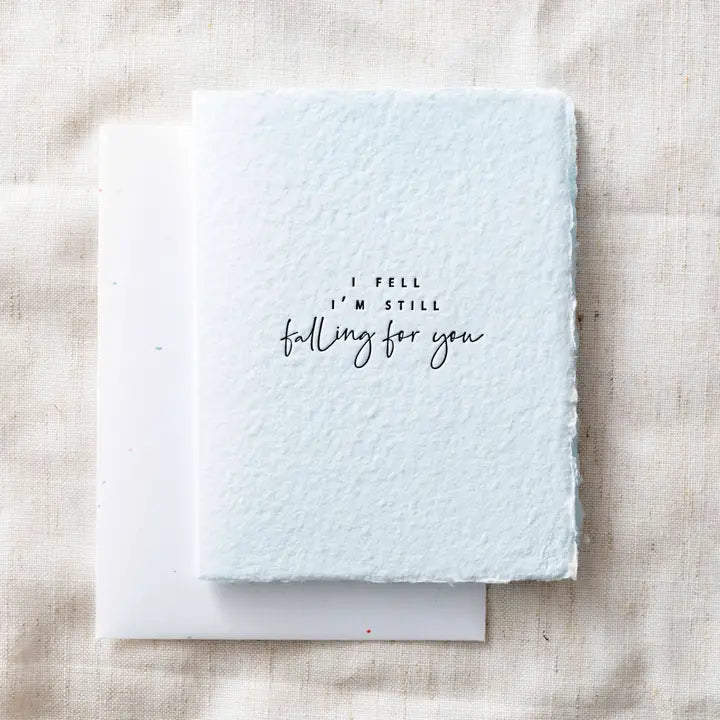 I FELL
I'M STILL
falling for you